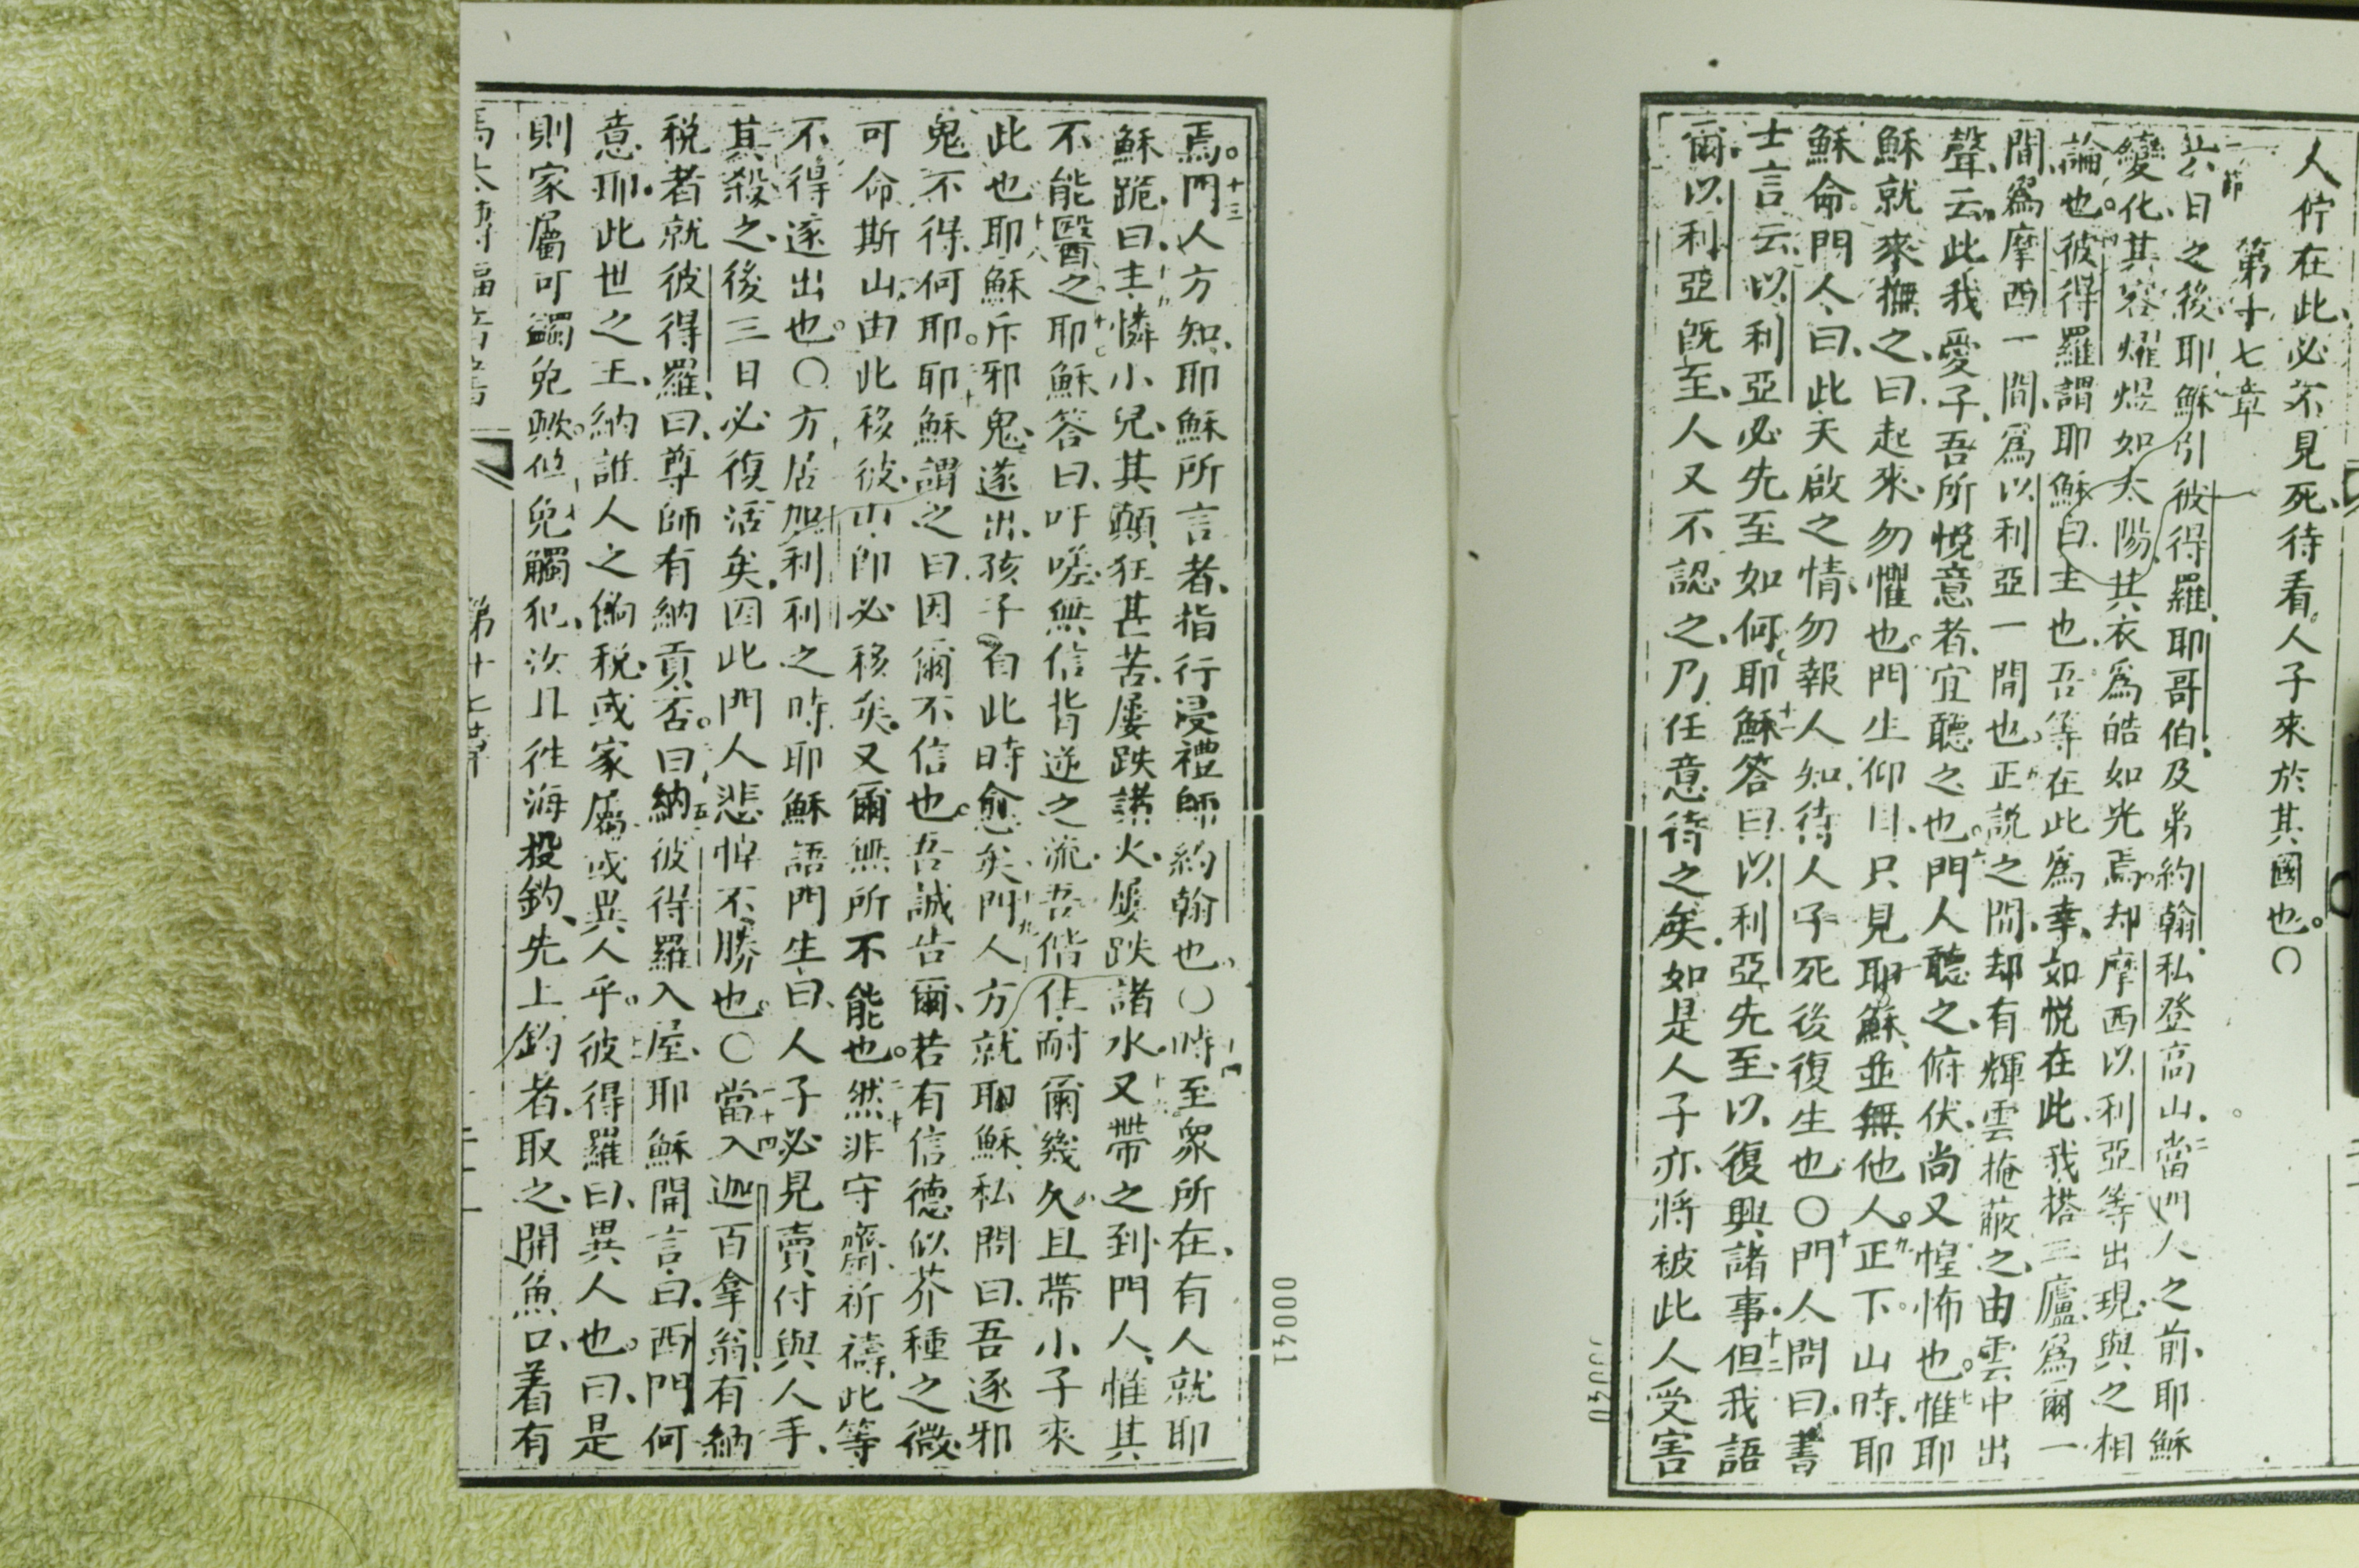 人佇在此、必不見死、待看人子來於其國也。〇
第十七章
六日之後、耶穌引彼得羅、耶哥伯、及弟約翰、私登高山、當門人之前、耶穌
變化、其容燿煜如太陽、其衣爲皓如光焉。却摩西以利亞等出現、與之相
論也。彼得羅謂耶穌曰、主也、吾等在此爲幸、如悦在此、我搭三廬、爲爾一
間、爲摩西一間、爲以利亞一間也。正説之間、却有輝雲掩蔽之、由雲中出
聲、云、此我愛子、吾所悦意者、宜聽之也。門人聽之、俯伏、尚又惶怖也。惟耶
穌就來撫之、曰、起來、勿懼也。門生仰目、只見耶穌、並無他人。正下山時、耶
穌命門人、曰、此天啟之情、勿報人知、待人子死後復生也〇門人問曰、書
士言云、以利亞必先至如何、耶穌答曰、以利亞先至、以復興諸事、但我語
爾、以利亞既至、人又不認之、乃任意待之矣、如是人子亦將被此人受害
焉。門人方知、耶穌所言者、指行浸禮師約翰也。〇時至衆所在、有人就耶
穌跪、曰、主、憐小兒、其顛狂甚苦、屢跌諸火、屢跌諸水、又帶之到門人、惟其
不能醫之、耶穌答曰、吁嗟、無信背逆之流、吾偕住耐爾幾久、且帶小子來
此也、耶穌斥邪鬼、遂出、孩子自此時愈矣、門人方就耶穌、私問曰、吾逐邪
鬼不得、何耶。耶穌謂之曰、因爾不信也。吾誠告爾、若有信德似芥種之微、
可命斯山、由此移彼、山即必移矣。又爾無所不能也。然非守齋祈禱、此等
不得逐出也。〇方居加利利之時、耶穌語門生曰、人子必見賣付與人手、
其殺之、後三日必復活矣。因此門人悲悼不勝也。〇當入迦百拿翁、有納
稅者就彼得羅、曰、尊師有納貢否。曰納、彼得羅入屋、耶穌開言、曰、西門何
意耶、此世之王、納誰人之餉稅、或家屬或異人乎。彼得羅曰、異人也。曰、是
則家屬可蠲免歟。但免觸犯、汝且徃海投釣、先上釣者、取之、開魚口、着有
馬太傳福音書
第十七章
00041